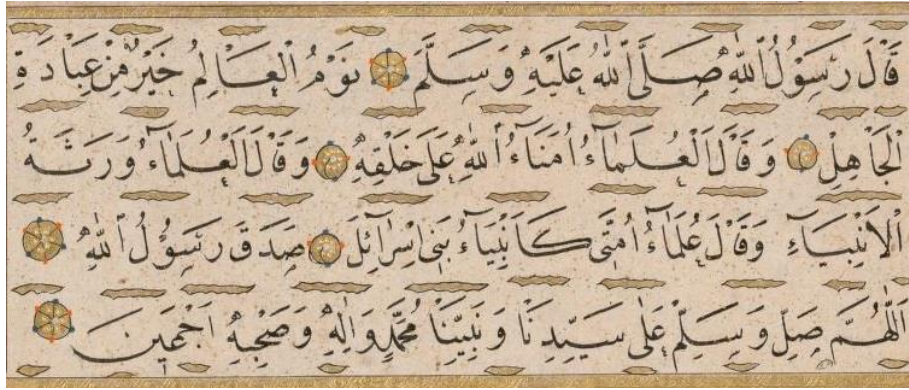 قَالَ رَسُوْلُ اللّٰهِ صَلَّى اللّٰهُ عَلَيْهِ وَسَلَّمَ نَوْمُ الْعَالِمِ خَيْرٌ مِنْ عِبَادَةِ
الْجَاهِلِ وَقَالَ الْعُلَمَآءُ اُمَنَآءُ اللّٰهِ عَلَى خَلْقِهِ وَقَالَ الْعُلَمَآءُ وَرَثَةُ
الْاَنْبِيَآءِ وَقَالَ عُلَمَآءُ اُمَّتِى كَاَنْبِيَآءِ بَنِى اِسْرَائِلَ صَدَقَ رَسُوْلُ اللّٰهِ
اَللّٰهُمَّ صَلِّ وَسَلِّمْ عَلَى سَيِّدِنَا وَنَبِيِّنَا مُحَمَّدٍ وَاٰلِهِ وَصَحْبِهِ اَجْمَعِينَ